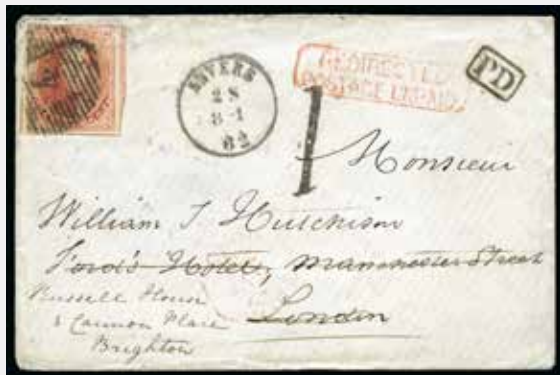 ANVERS
28
8-1
62
REDIRECTED
POSTAGE UNPAID
PD
1
Monsieur
William T Hutchison
Ford's Hotel, Manchester Street
London
Russell House
Cannon Place
Brighton